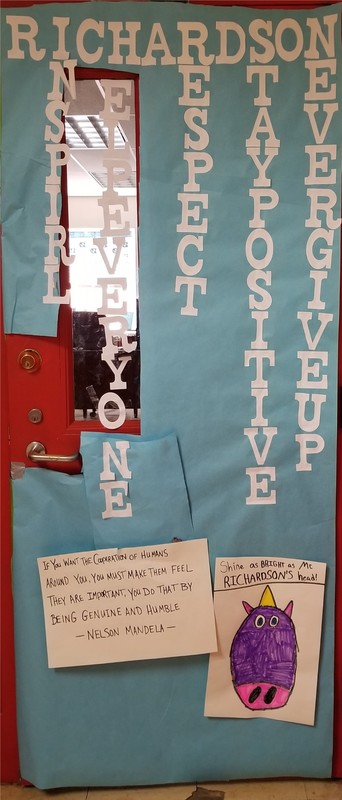 RICHARDSON
NSPIRL
ELPEVERYONE
ESPECT
TAYPOSITIVE
EVERGIVEUP
IF YOU WANT THE COOPERATION OF HUMANS
AROUND YOU, YOU MUST MAKE THEM FEEL
THEY ARE IMPORTANT, YOU DO THAT BY
BEING GENUINE AND HUMBLE
— NELSON MANDELA —
Shine as BRIGHT as Mr.
RICHARDSON'S head!